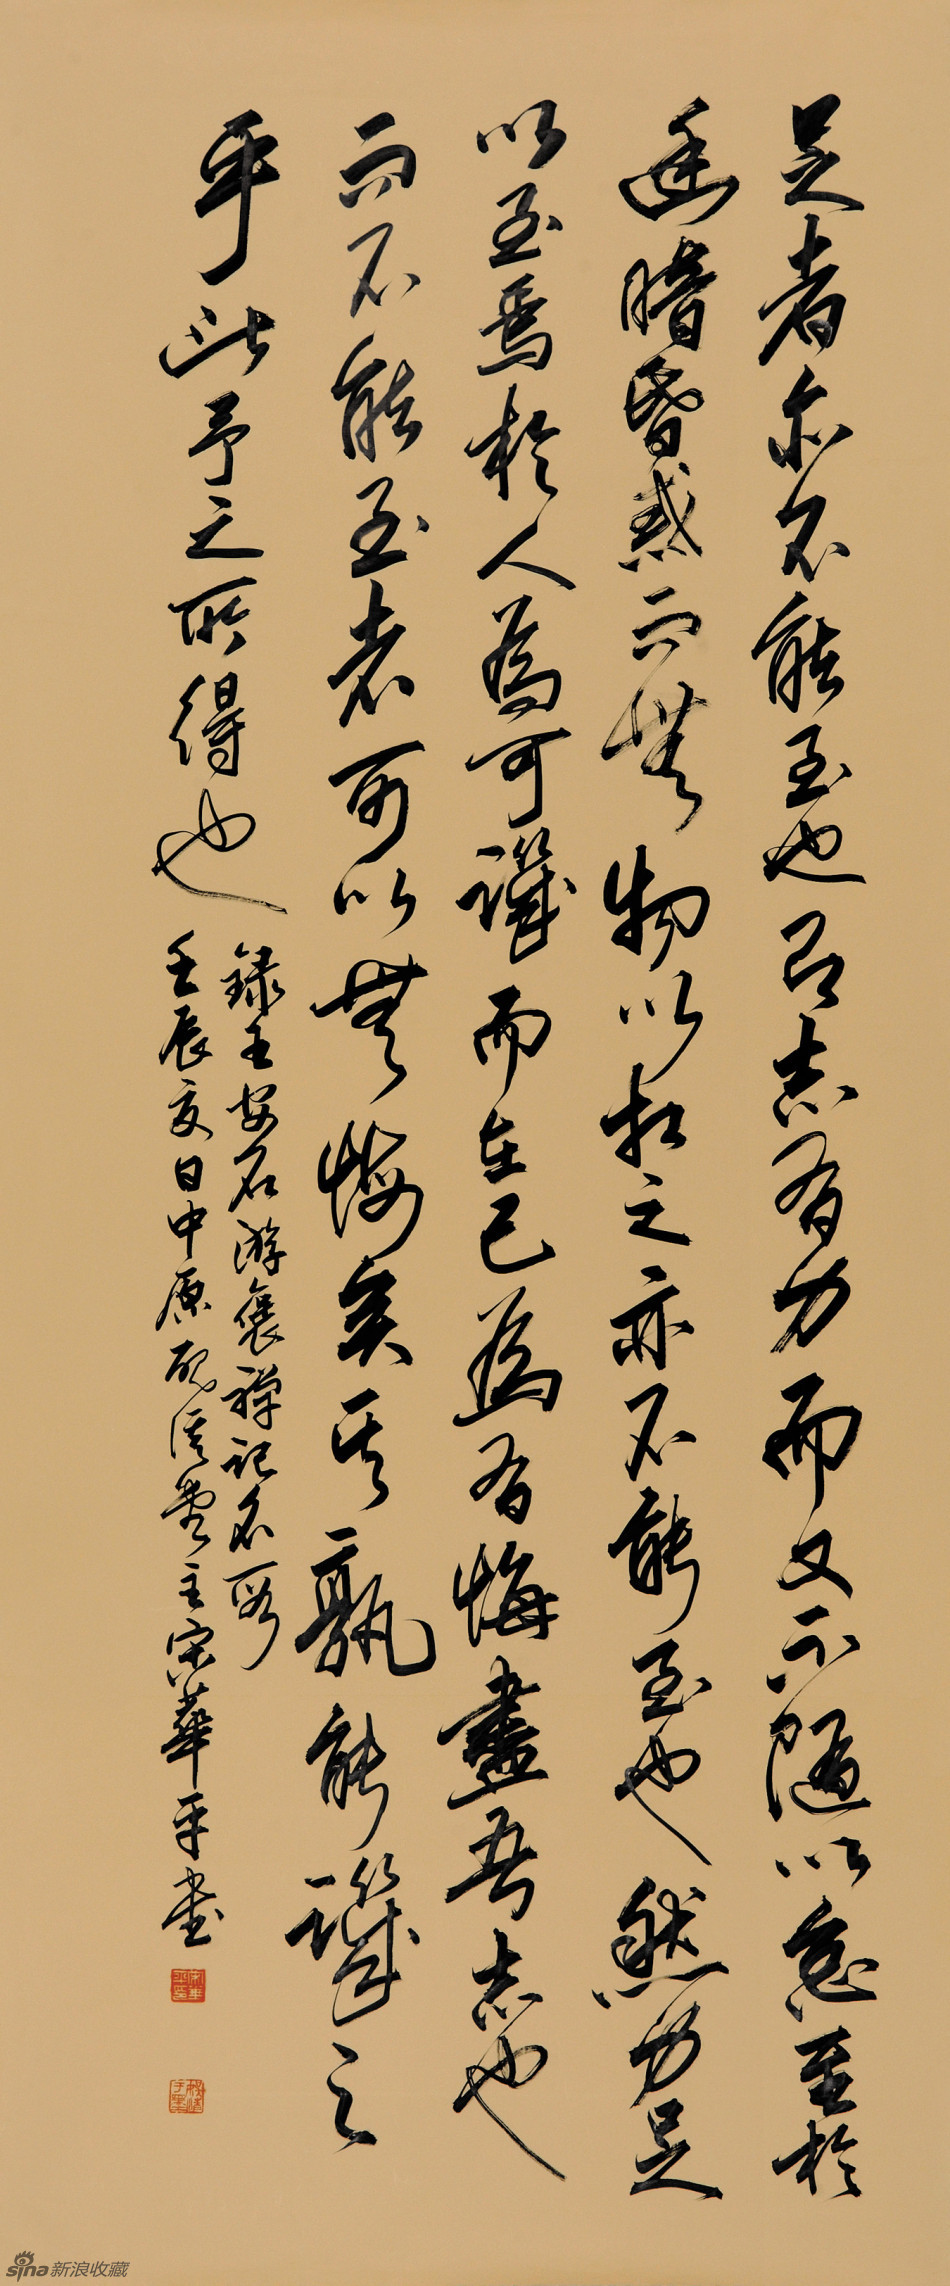 足者亦不能至也志有力而又不隨以怠至於
幽暗昏惑而無物以相之亦不能至也然力足
以至焉於人為可譏而在己為有悔盡吾志也
而不能至者可以無悔矣其孰能譏之
乎此予之所得也
録王安石游褒禪記名段
壬辰夏日中原主宋華平書
sina新浪收藏